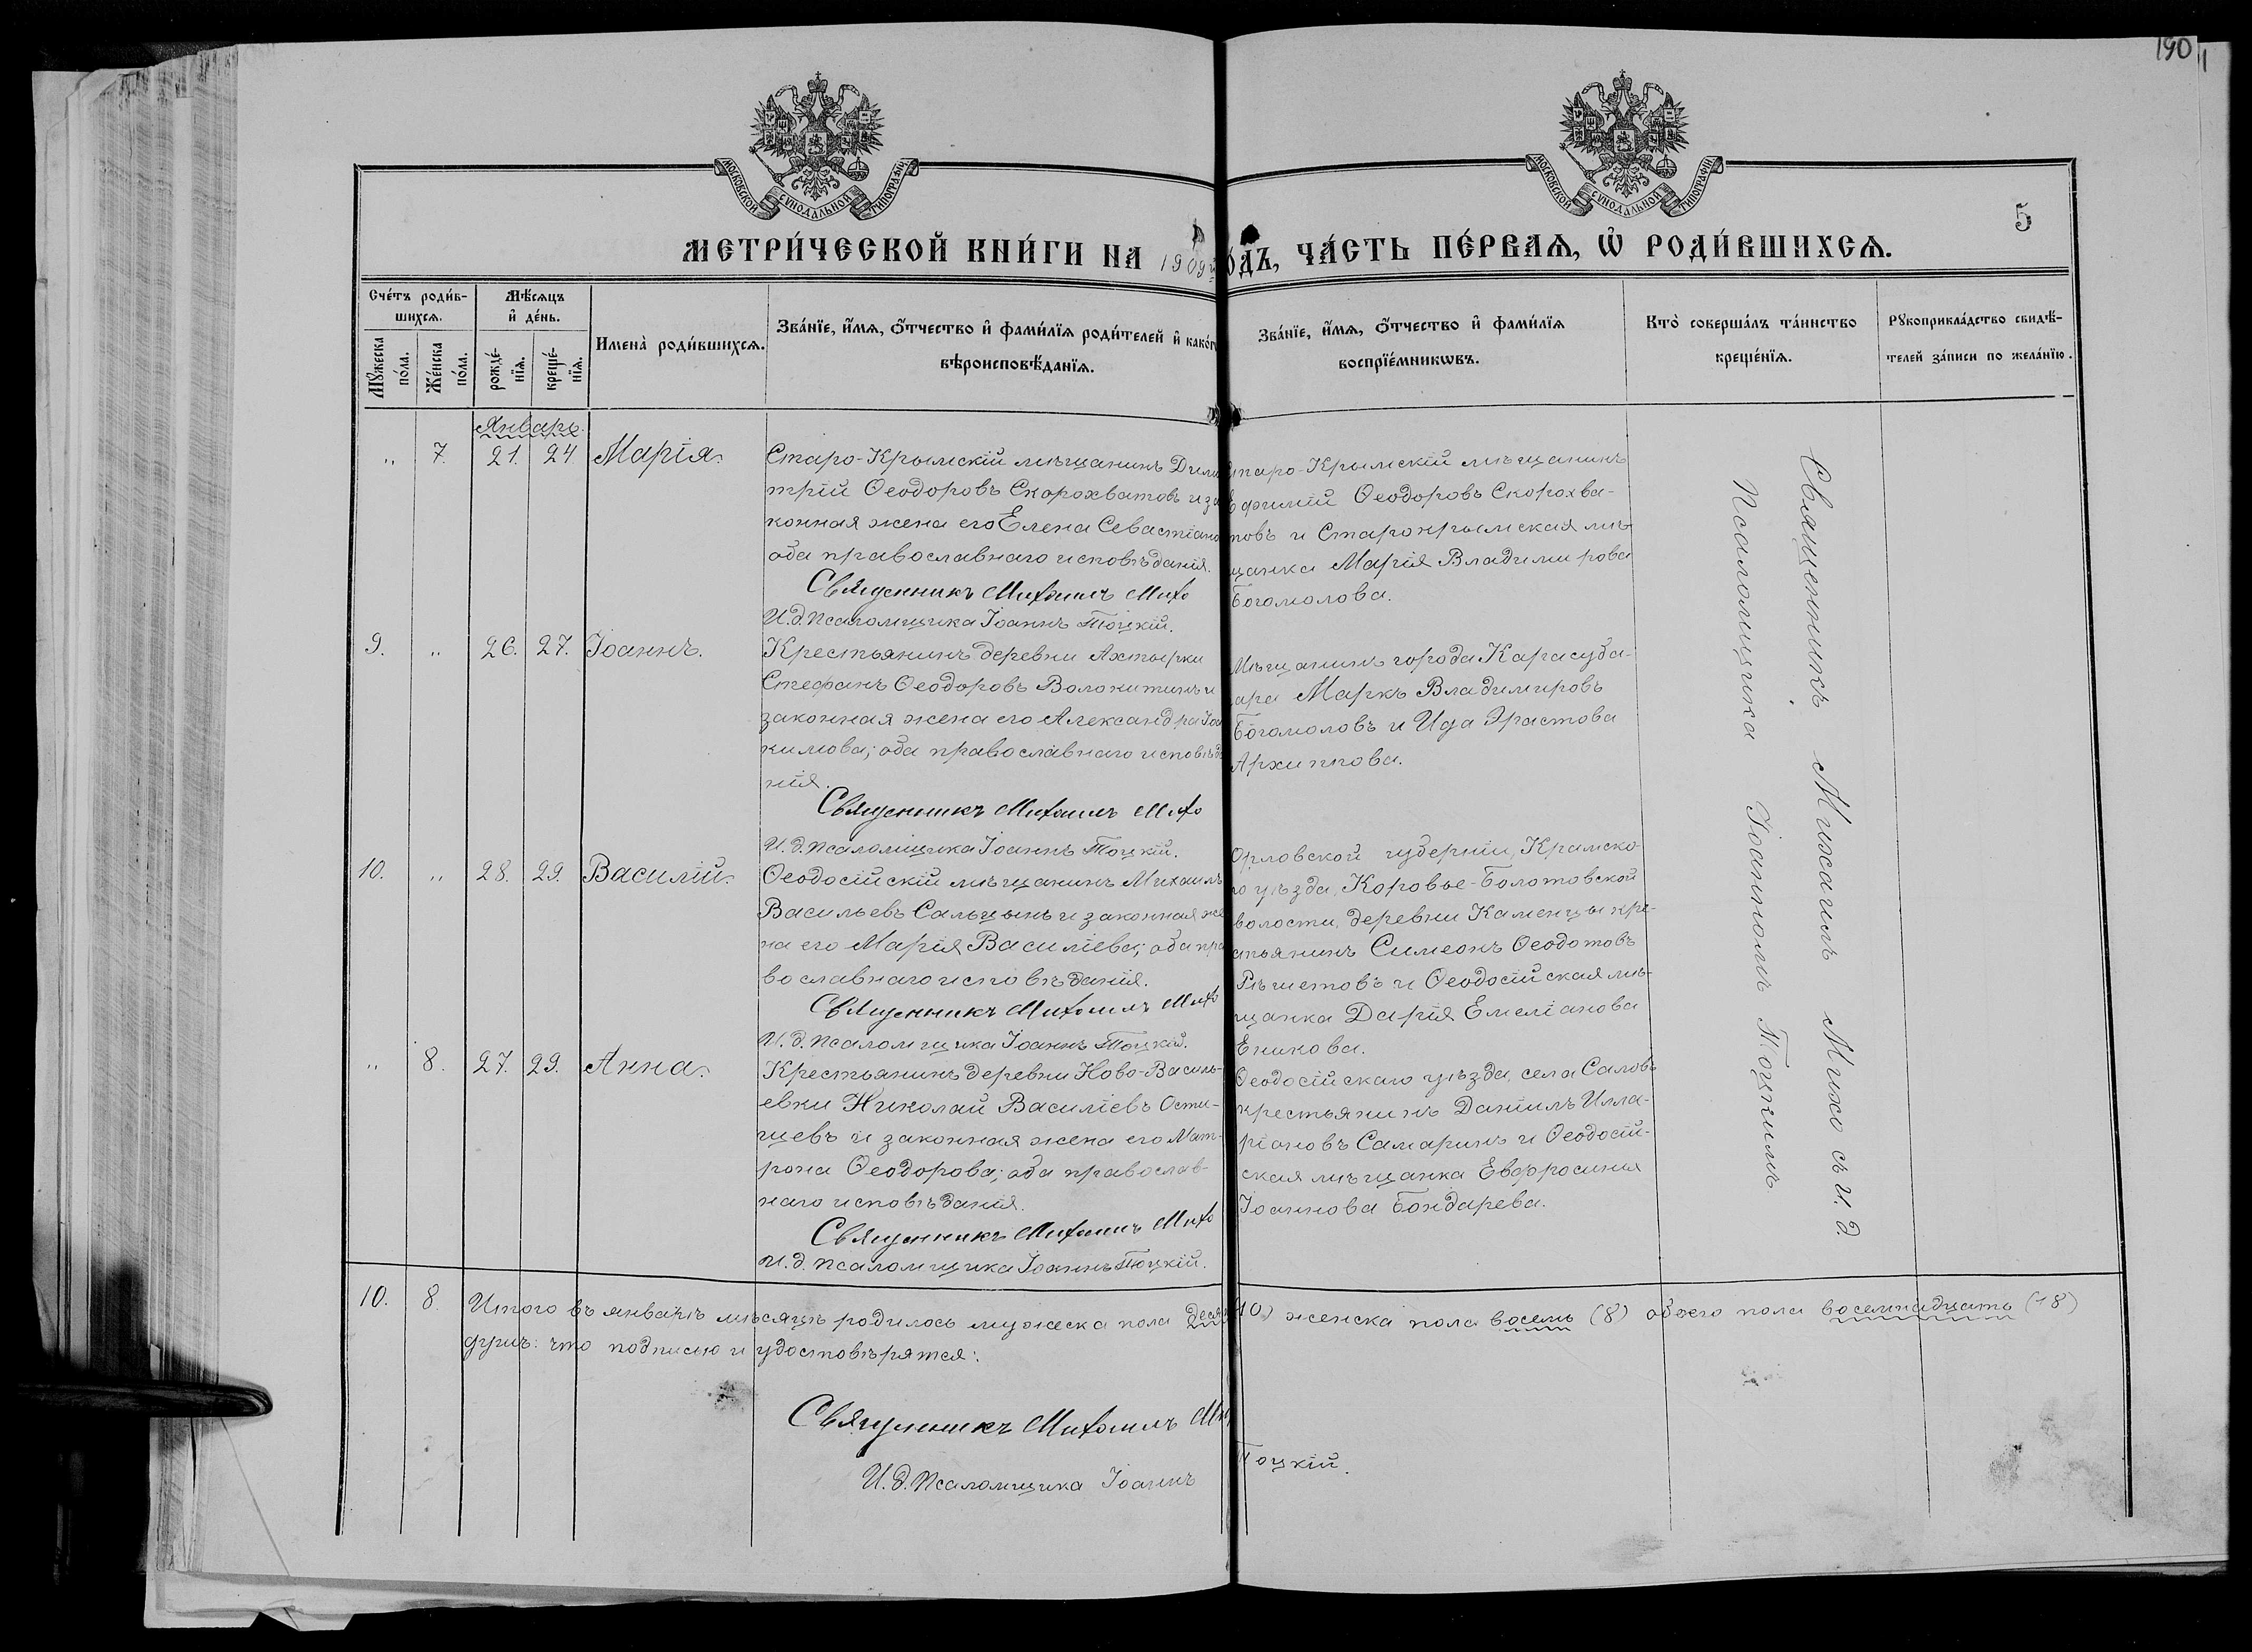 190
5
МОСКОВСКОЙ СѴНОДАЛЬНОЙ ТИПОГРАФІИ
МОСКОВСКОЙ СѴНОДАЛЬНОЙ ТИПОГРАФІИ
МЕТРИ́ЧЕСКОЙ КНИ́ГИ НА 1909 ГО́ДЪ, ЧА́СТЬ ПЕ́РВАѦ, Ѡ҆ РОДИ́ВШИХСѦ.
Сче́тъ роди́в-
шихсѧ.
Мꙋ́жеска по́ла.
Же́нска по́ла.
Мѣ́сѧцъ
и҆ де́нь.
рожде́-
нїѧ.
креще́-
нїѧ.
Имена̀ роди́вшихсѧ.
Зва́нїе, и҆́мѧ, ѻ҆́тчество и҆ фами́лїѧ роди́телей и҆ како́гѡ
вѣроисповѣ́данїѧ.
Зва́нїе, и҆́мѧ, ѻ҆́тчество и҆ фами́лїѧ
воспрїе́мникѡвъ.
Кто̀ соверша́лъ та́инство
креще́нїѧ.
Рꙋкоприкла́дство свидѣ́-
телей за́писи по жела́нїю.
Январь.
" 7. 21. 24. Марія.
Старо-Крымскій мѣщанинъ Дими
трій Ѳеодоровъ Скорохватовъ и за
конная жена его Елена Севастіано
оба православнаго исповѣданія.
Священникъ Михаилъ Михо
И.д. псаломщика Іоаннъ Тоцкій.
Старо-Крымскій мѣщанинъ
Ефимій Ѳеодоровъ Скорохва-
товъ и Старокрымская мѣ
щанка Марія Владимирова
Богомолова.
9. " 26. 27. Іоаннъ.
Крестьянинъ деревни Ахтырки
Стефанъ Ѳеодоровъ Волокитинъ и
законная жена его Александра Іоа
кимова; оба православнаго исповѣда
нія.
Священникъ Михаилъ Михо
И.д. псаломщика Іоаннъ Тоцкій.
Мѣщанинъ города Карасуба-
зара Маркъ Владимировъ
Богомоловъ и Ида Эрастова
Архипова.
10. " 28. 29. Василій.
Ѳеодосійскій мѣщанинъ Михаилъ
Васильевъ Сальцынъ и законная же
на его Марія Василіева; оба пра
вославнаго исповѣданія.
Священникъ Михаилъ Михо
И.д. псаломщика Іоаннъ Тоцкій.
Орловской губерніи, Крамско-
го уѣзда, Коровье-Болотовской
волости, деревни Каменцы кре-
стьянинъ Симеонъ Ѳеодотовъ
Рѣшетовъ и Ѳеодосійская мѣ-
щанка Дарія Емеліанова
Еникова.
" 8. 27. 29. Анна.
Крестьянинъ деревни Ново-Василь-
евки Николай Василіевъ Ости-
щевъ и законная жена его Мат-
рона Ѳеодорова; оба православ-
наго исповѣданія.
Священникъ Михаилъ Михо
И.д. псаломщика Іоаннъ Тоцкій.
Ѳеодосійскаго уѣзда, села Саловъ
крестьянинъ Даніилъ Илла-
ріоновъ Самаринъ и Ѳеодосій-
ская мѣщанка Евфросинія
Іоаннова Бондарева.
Священникъ Михаилъ Михо съ И.д.
Псаломщика Іоанномъ Тоцкимъ
10. 8. Итого въ январѣ мѣсяцѣ родилось мужеска пола десять (10) женска пола восемь (8) обоего пола восемнадцать (18)
душъ: что подписью и удостовѣряется:
Священникъ Михаилъ Михо
И.д. Псаломщика Іоаннъ Тоцкій.